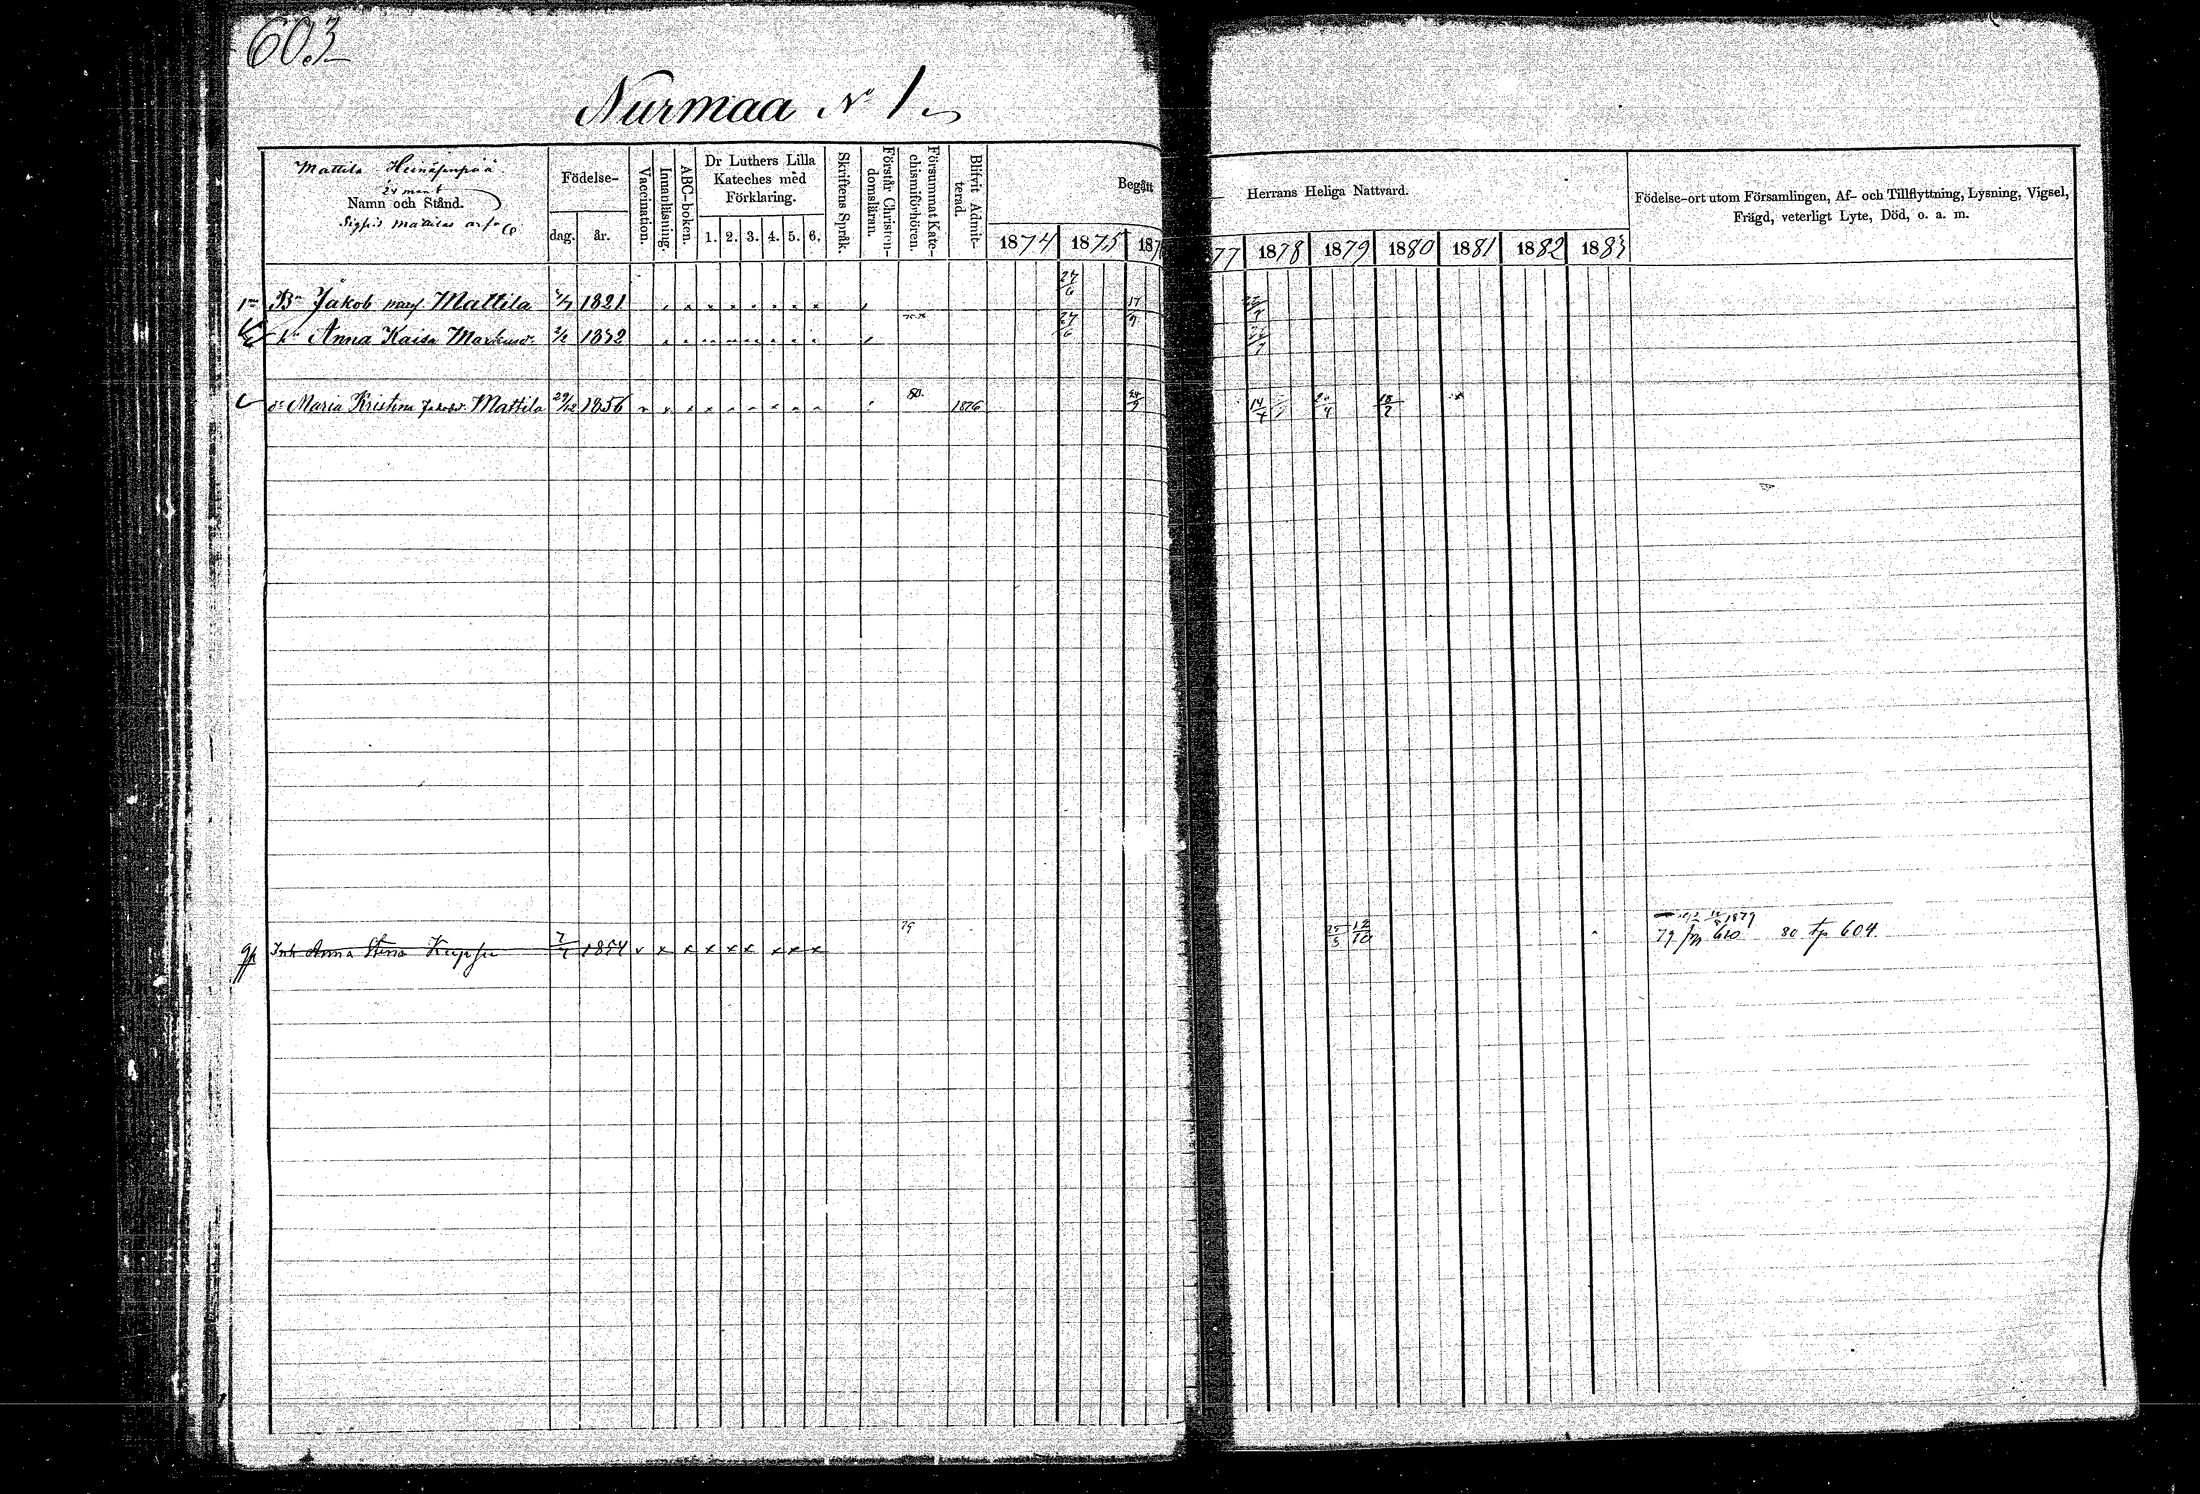 603
Nurmaa No 1
Mattila
Namn och Stånd.
Födelse-
dag. år.
Vaccination.
Innanläsning.
ABC-boken.
Dr Luthers Lilla Kateches med Förklaring.
1. 2. 3. 4. 5. 6.
Skriftens Språk.
Förstår Christendomsläran.
Försummat Katechismiförhören.
Blifvit Admitterad.
Begått
Herrans Heliga Nattvard.
1874 1875 187
77 1878 1879 1880 1881 1882 1883
Födelse-ort utom Församlingen, Af- och Tillflyttning, Lysning, Vigsel,
Frägd, veterligt Lyte, Död, o. a. m.
Jakob Mattila 1821 27/6
Anna Kaisa 27/6
Maria Kristina Jakobsd. Mattila 29/12 1856 80. 1876 24/9 14/7 20/4 18/2
Inh Anna Stina 1854 v x x x x x x x x 79 12/10 1879
79 fm 610 80 tp 604.